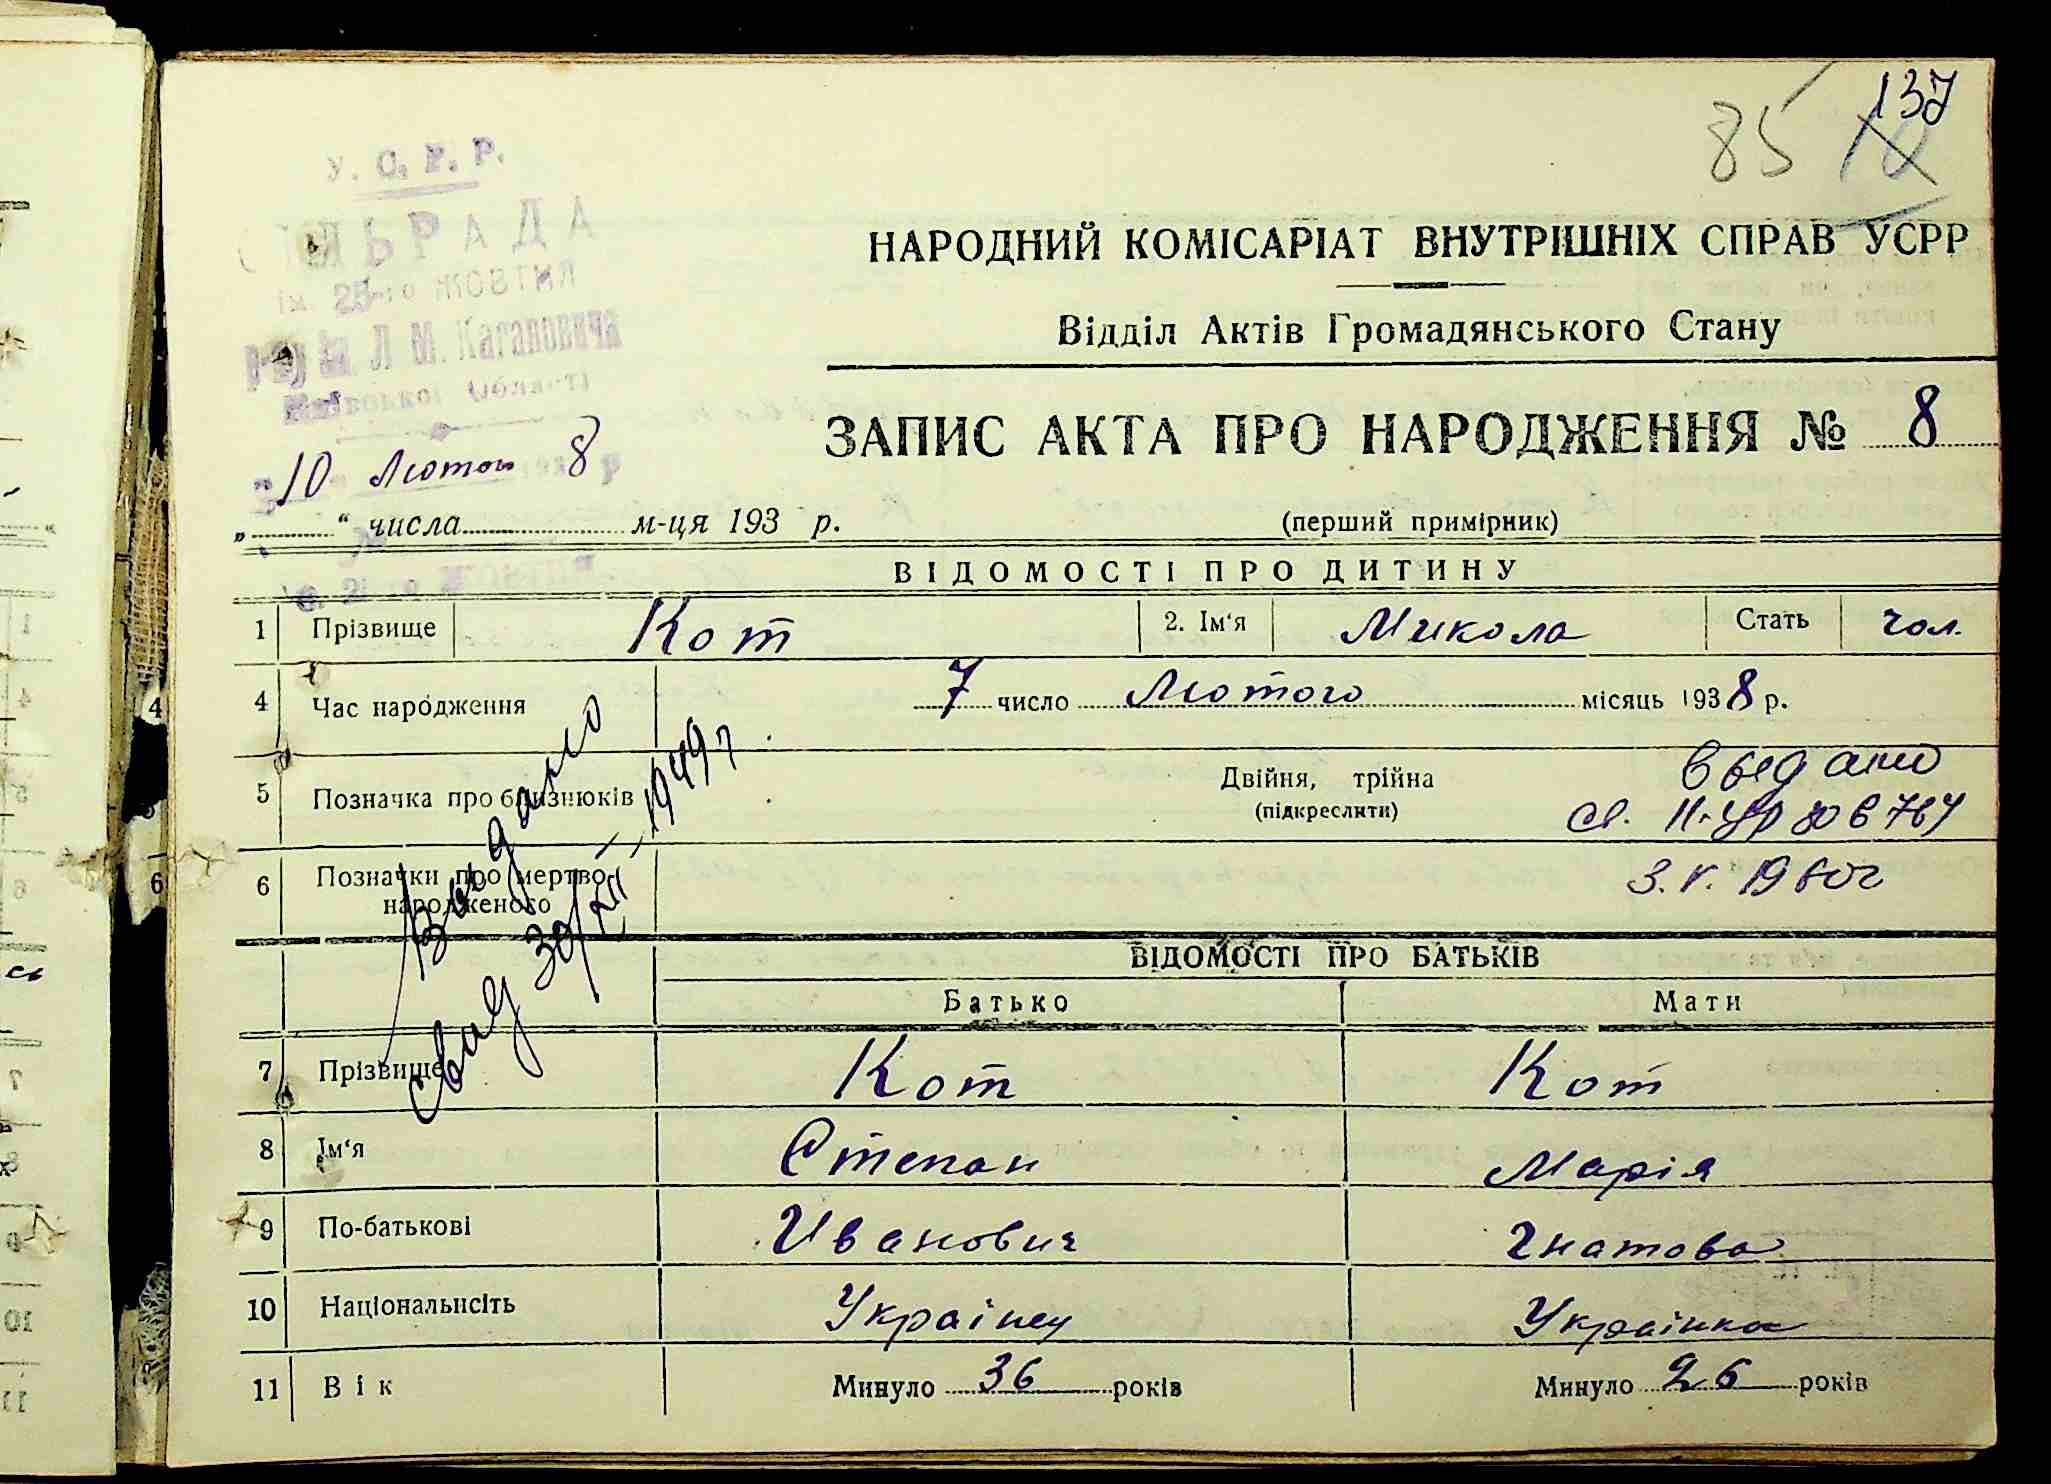 137
85
У. С. Р. Р.
СІЛЬРАДА
ім. 25-го ЖОВТНЯ
р-ну ім. Л. М. Кагановича
Київської області
10 Лютого 8 р
„ “ числа м-ця 193 р.
НАРОДНИЙ КОМІСАРІАТ ВНУТРІШНІХ СПРАВ УСРР
Відділ Актів Громадянського Стану
ЗАПИС АКТА ПРО НАРОДЖЕННЯ № 8
(перший примірник)
ВІДОМОСТІ ПРО ДИТИНУ
1 Прізвище Кот 2. Ім‘я Микола Стать чол.
4 Час народження 7 число Лютого місяць 1938 р.
5 Позначка про близнюків Двійня, трійна
(підкреслити)
выдано
св. 11-УР 806764
3.V.1960г
6 Позначки про мертво-
народженого
Выдано
свид 30/XII 1949 г
ВІДОМОСТІ ПРО БАТЬКІВ
Батько Мати
7 Прізвище Кот Кот
8 Ім‘я Степан Марія
9 По-батькові Иванович Гнатова
10 Національнсіть Українец Українка
11 Вік Минуло 36 років Минуло 26 років